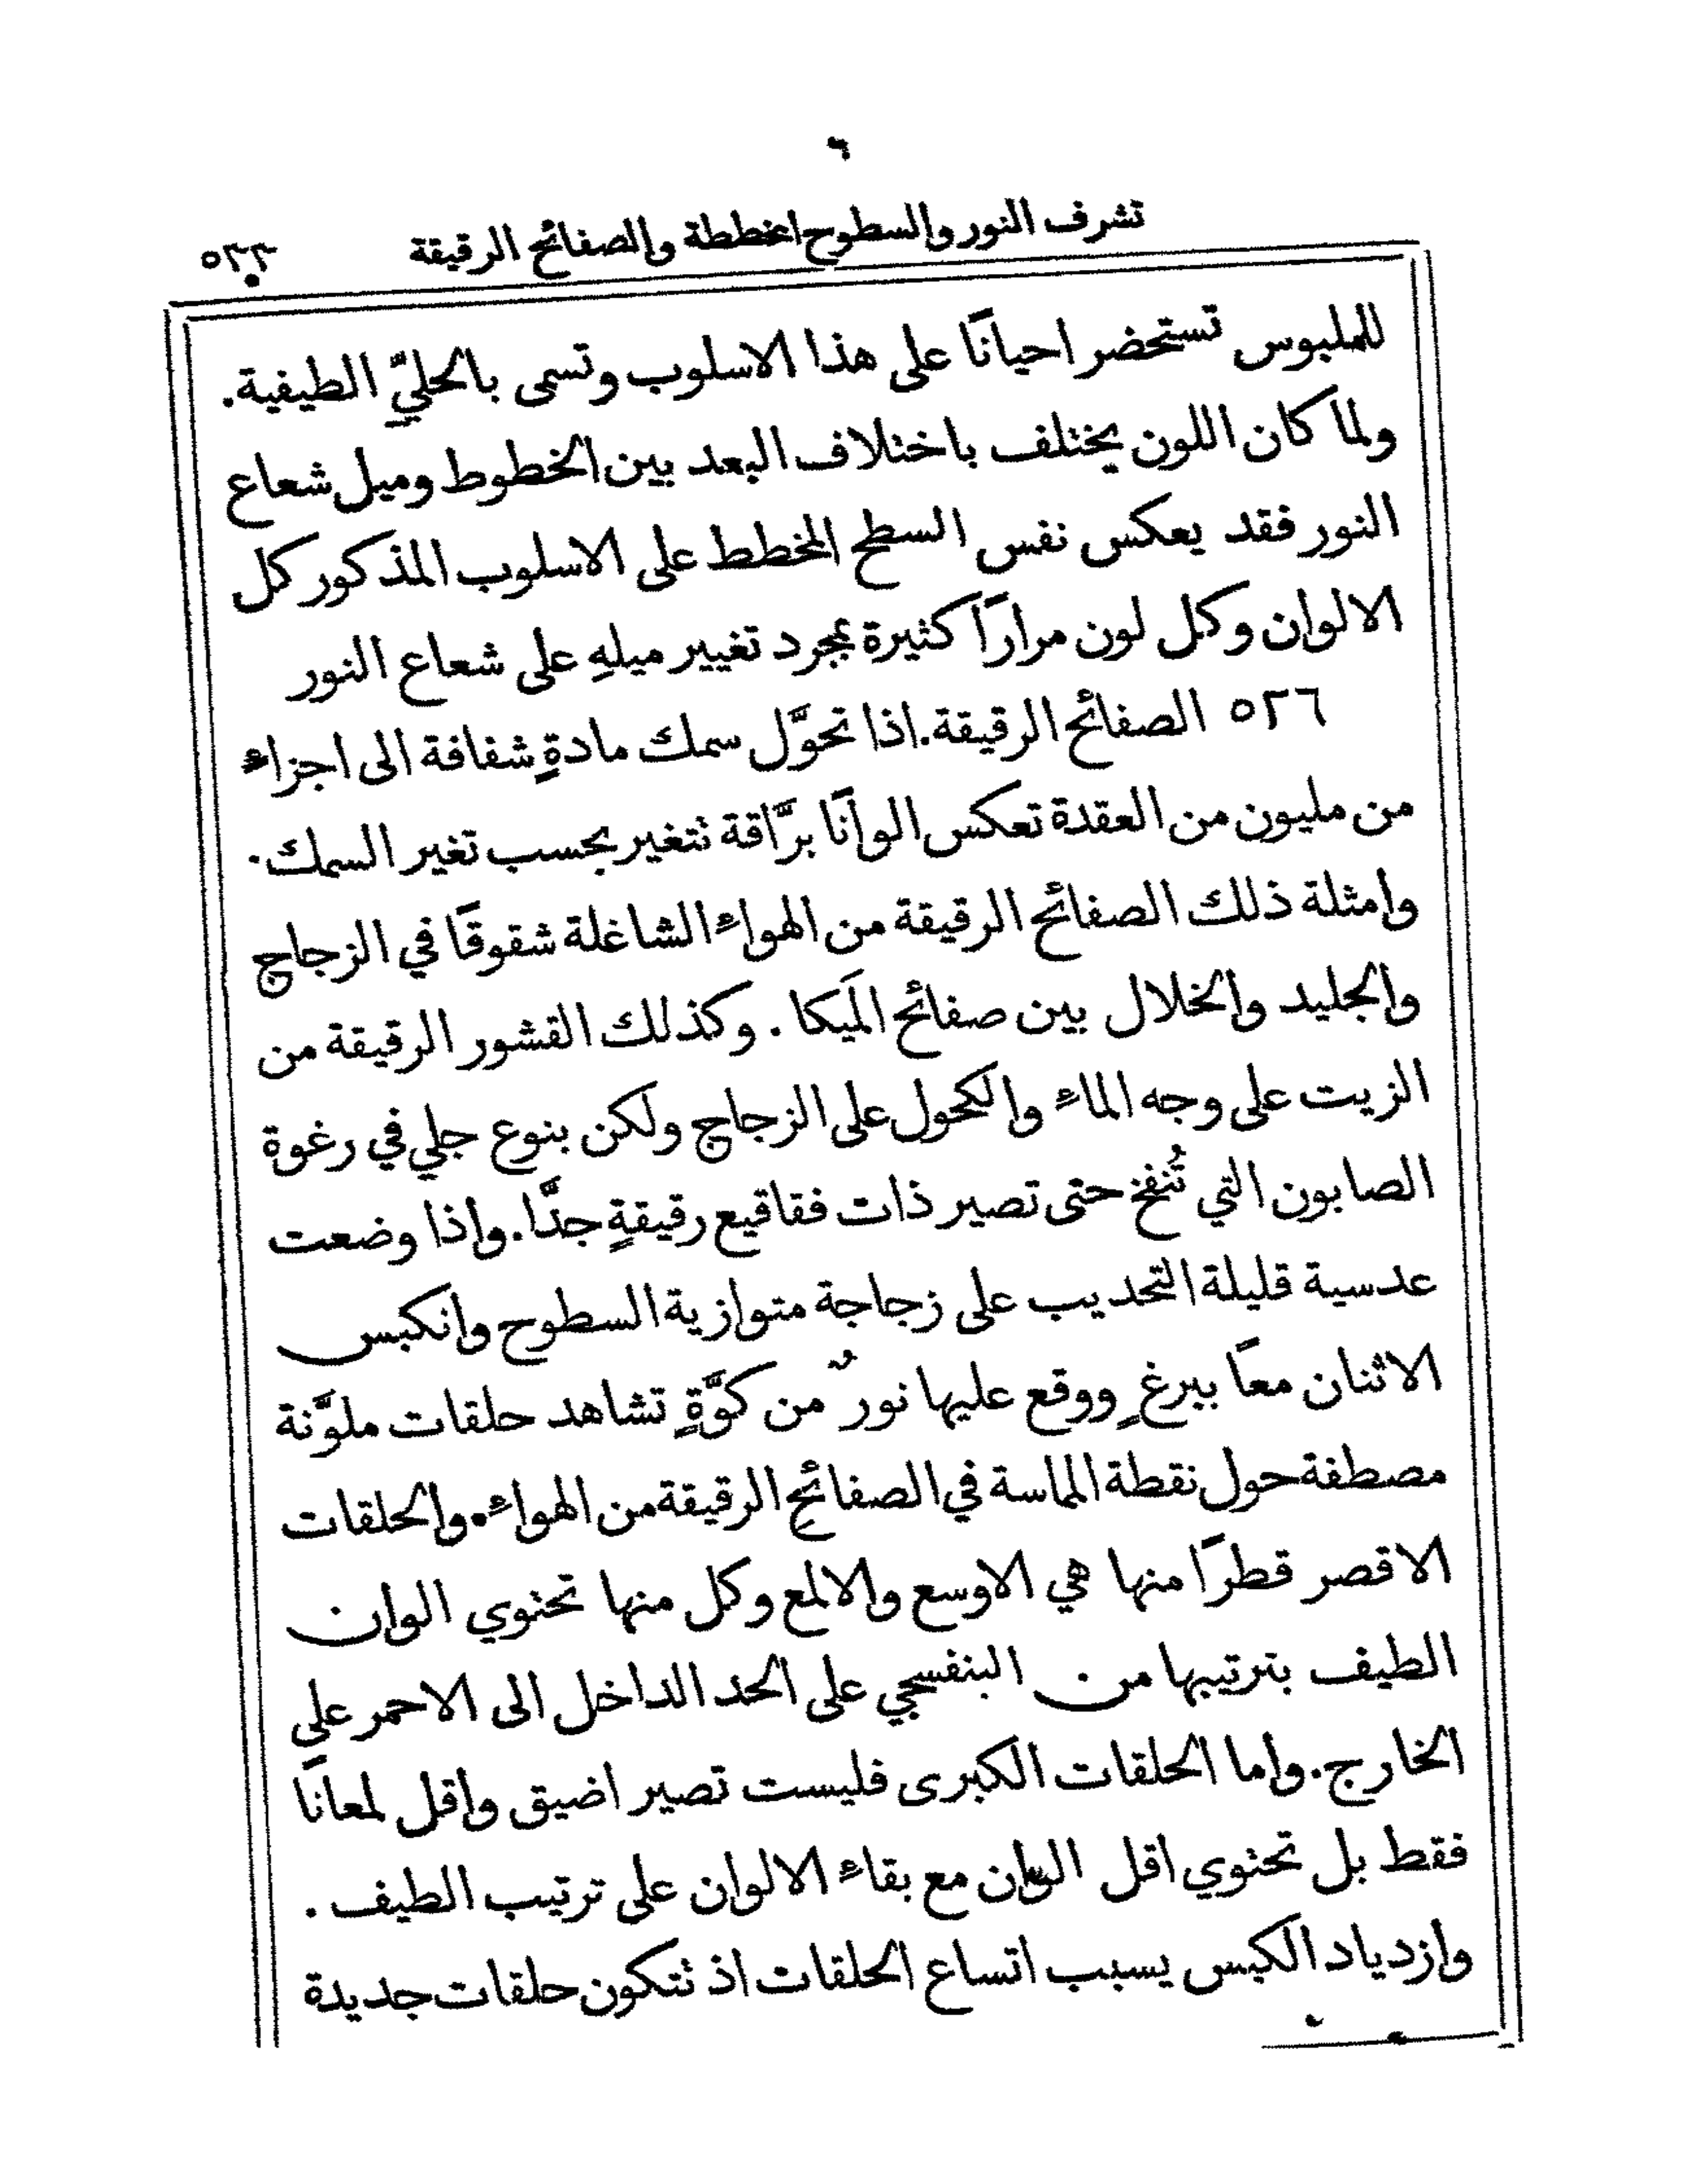 تشرف النور والسطوح المخططة والصفائح الرقيقة ٥٢٣
للملبوس تستحضر احيانًا على هذا الاسلوب وتسمى بالحليّ الطيفية.
ولما كان اللون يختلف باختلاف البعد بين الخطوط وميل شعاع
النور فقد يعكس نفس السطح المخطط على الاسلوب المذكور كل
الالوان وكل لون مرارًا كثيرة بمجرد تغيير ميلهِ على شعاع النور
٥٢٦ الصفائح الرقيقة. اذا تحوَّل سمك مادةٍ شفافة الى اجزاء
من مليون من العقدة تعكس الوانًا برَّاقة نتغير بحسب تغير السمك.
وامثلة ذلك الصفائح الرقيقة من الهواء الشاغلة شقوقًا في الزجاج
والجليد والخلال بين صفائح المَيكا. وكذلك القشور الرقيقة من
الزيت على وجه الماء والكحول على الزجاج ولكن بنوع جلي في رغوة
الصابون التي تُنفخ حتى تصير ذات فقاقيع رقيقةٍ جدًّا. واذا وضعت
عدسية قليلة التحديب على زجاجة متوازية السطوح وانكبس
الاثنان معًا ببرغٍ ووقع عليها نورٌ من كوَّةٍ تشاهد حلقات ملوَّنة
مصطفة حول نقطة المماسة في الصفائح الرقيقة من الهواء. والحلقات
الاقصر قطرًا منها هي الاوسع والالمع وكل منها تحنوي الوان
الطيف بترتيبها من البنفسجي على الحد الداخل الى الاحمر على
الخارج. واما الحلقات الكبرى فليست تصير اضيق واقل لمعانًا
فقط بل تحنوي اقل الوان مع بقاء الالوان على ترتيب الطيف.
وازدياد الكبس يسبب اتساع الحلقات اذ نتكون حلقات جديدة